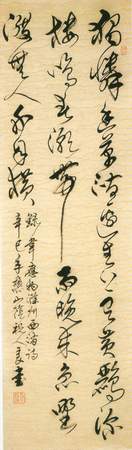 獨憐幽草澗邊生上有黃鸝深
樹鳴春潮帶雨晚來急野
渡無人舟自橫
錄韋應物滁州西澗詩
辛巳年山陰人書